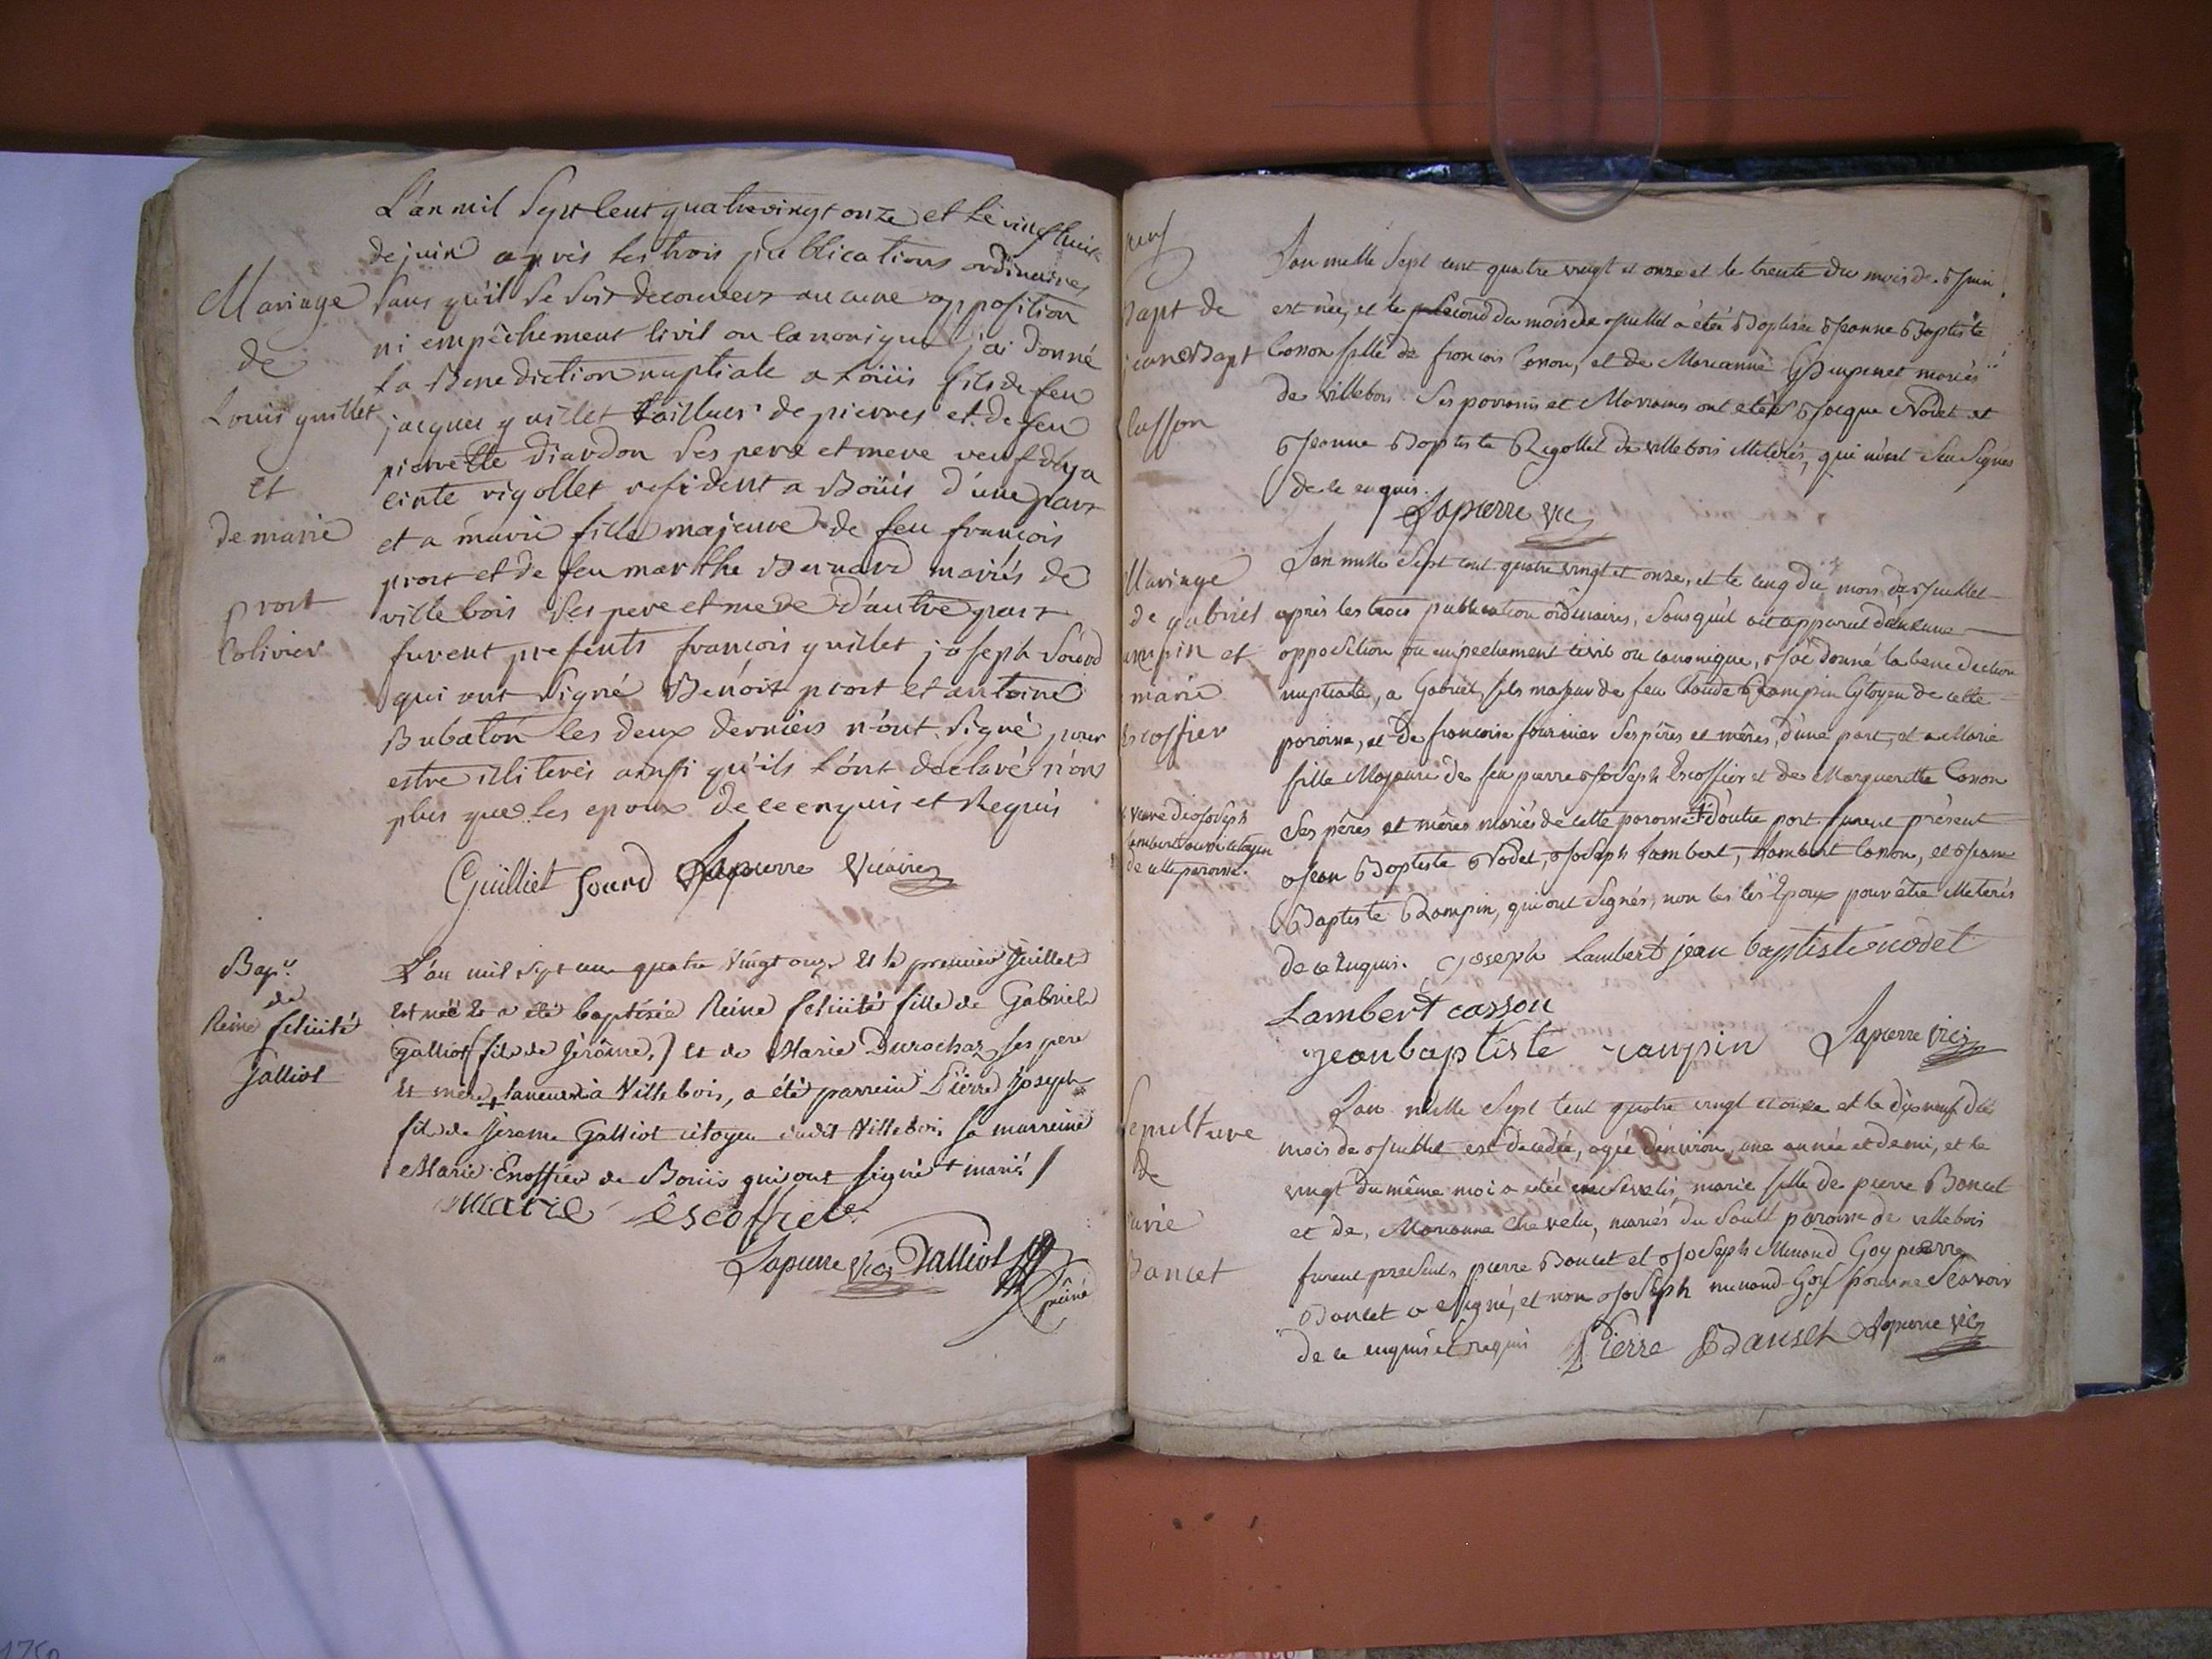 L'an mil Sept cent quatrevingt onze et le vingt huit
de juin après les trois publications ordinaires
Mariage
de
Louis guillet
et
de marie
prost
Colivier
sans qu'il se soit decouvert aucune opposition
ni empêchement civil ou canonique j'ai donné
la Benediction nuptiale a Loüis fils de feu
jacques guillet tailleur de pierres et de feu
pierrette diardon ses pere et mere veuf d'hya
cinte rigollet resident a Boüis d'une part
et a marie fille majeure de feu françois
prost et de feu marthe Bernard mariés de
villebois ses pere et mere d'autre part
furent presents françois guillet joseph Sourd
qui ont signé Benoit prost et antoine
Bubaton les deux derniers n'ont signé pour
estre illiterés ainsi qu'ils l'ont declaré n'ont
plus que les epoux de ce enquis et Requis
Guïlliet Sourd Lapierre Vicaire
Bap.
de
Reine felicité
Galliot
L'an mil sept cent quatre vingt onze et le premier Juillet
est née et a été baptisée Reine felicité fille de Gabriel
Galliot (fils de Jérôme,) et de Marie Durochaz ses pere
et mere + à Villebois, a été parrein Pierre Joseph
fils de Jérome Galliot citoyen dudit Villebois sa marreine
Marie Escoffier de Bouis qui ont signé + mariés /
marie êscoffier
Lapierre Vic Galliot
Bapt de
jeane Bapt
Casson
L'an mille Sept cent quatre vingt et onze et le trente du mois de Juin
est née, et le second du mois de Juillet a étéé Baptisée Jeanne Baptiste
Casson fille de françois Casson, et de Marianne mariés
de villebois. Ses parrains et Marraines ont étéés Jacque Nodet et
Jeanne Baptiste Rigollet de villebois illiterés, qui n'ont Seu Signer
de ce enquis.
Lapierre vic
Mariage
de gabriel
rampin et
marie
Escoffier
L'an mille Sept cent quatre vingt et onze, et le cinq du mois de Juillet
après les trois publication ordinaires, Sans qu'il ait apparut d'aucune
opposition ou empêchement civil ou canonique, J'ai donné la benediction
nuptiale, a Gabriel fils majeur de feu Claude Rampin Cytoyen de cette
paroisse, et de francoise fournier Ses pères et mères, d'une part, et a Marie
fille Majeure de feu pierre Joseph Escoffier et de Marguerite Casson
+ veuve de Joseph
Lambert citoyen
de cette paroisse.
Ses pères et mères mariés de cette paroisse + d'autre part furent présent
Jean Baptiste Nodet, Joseph Lambert, Lambert Casson, et Jean
Baptiste Rampin, qui ont Signés, non les Epoux pour être illiterés
de ce Enquis. joseph Lambert jean baptiste nodet
Lambert casson
jean baptiste rampin Lapierre vic
Sepulture
de
marie
Bancet
L'an mille Sept cent quatre vingt et onze et le dixneuf du
mois de Juillet est décédée, agée d'environ, une année et demi, et le
vingt du même moi a étéé enSevelis, marie fille de pierre Bancet
et de, Marianne Chevelu, mariés du Sault paroisse de villebois
furent présents pierre Bancet et Joseph Munand Goy pierre
Bancet a Signé, et non Joseph munand Goy pour ne Scavoir
de ce enquis et requis Pierre Banset Lapierre vic